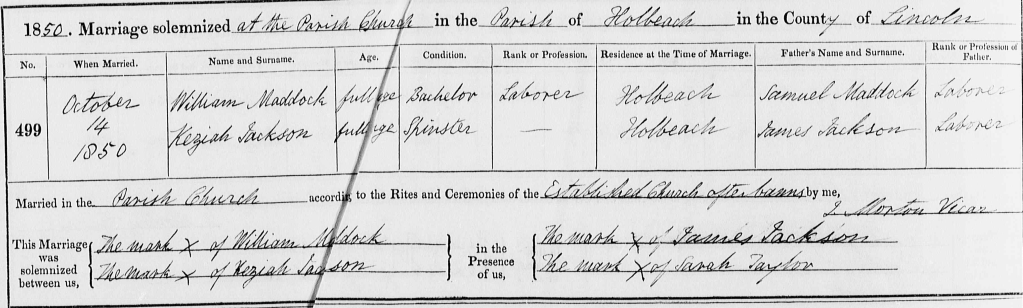 1850. Marriage solemnized at the Parish Church in the Parish of Holbeach in the County of Lincoln
No. When Married. Name and Surname. Age. Condition. Rank or Profession. Residence at the Time of Marriage. Father's Name and Surname. Rank or Profession of Father.
499 October 14 1850
William Maddock full age Bachelor Laborer Holbeach Samuel Maddock Laborer
Keziah Jackson full age Spinster — Holbeach James Jackson Laborer
Married in the Parish Church according to the Rites and Ceremonies of the Established Church after banns by me,
J Morton Vicar
This Marriage was solemnized between us,
The mark X of William Maddock
The mark X of Keziah Jackson
in the Presence of us,
The mark X of James Jackson
The mark X of Sarah Taylor